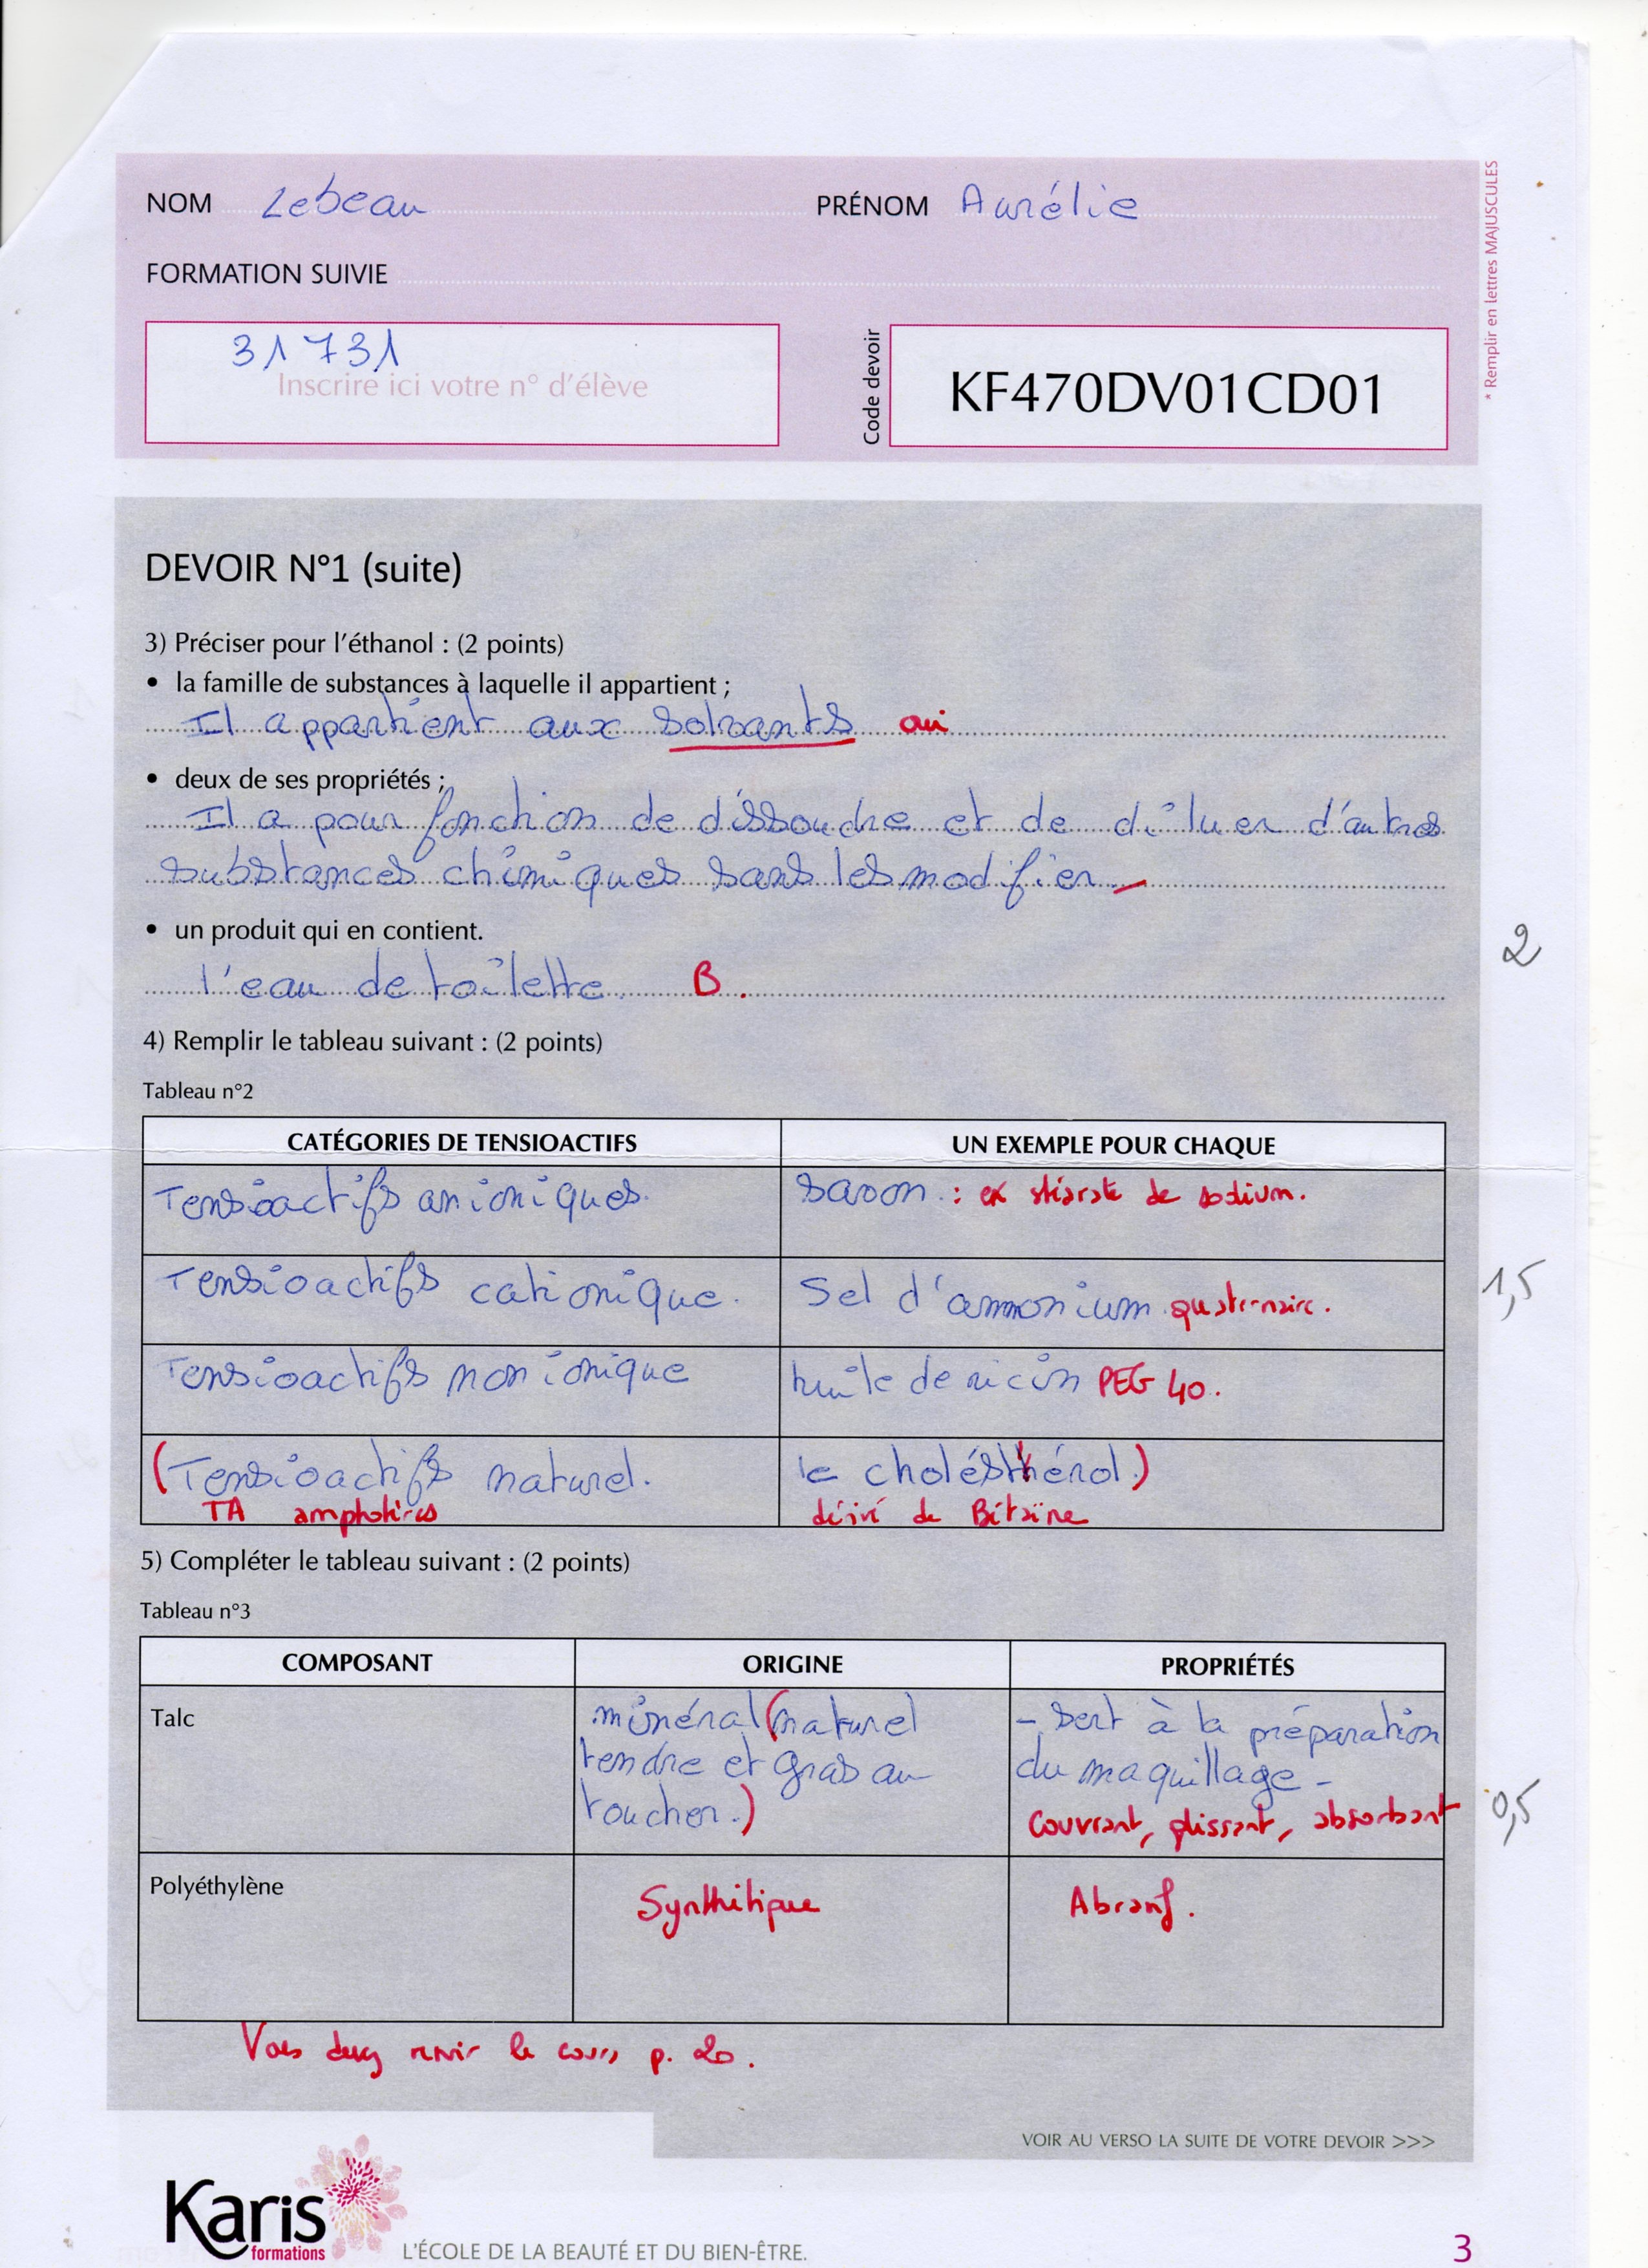 NOM Lebeau PRÉNOM Aurélie
* Remplir en lettres MAJUSCULES
FORMATION SUIVIE
31731
Inscrire ici votre n° d'élève
Code devoir
KF470DV01CD01
DEVOIR N°1 (suite)
3) Préciser pour l'éthanol : (2 points)
• la famille de substances à laquelle il appartient ;
Il appartient aux solvants oui
• deux de ses propriétés ;
Il a pour fonction de dissoudre et de diluer d'autres
substances chimiques sans les modifier
• un produit qui en contient.
2
l'eau de toilette. B.
4) Remplir le tableau suivant : (2 points)
Tableau n°2
CATÉGORIES DE TENSIOACTIFS UN EXEMPLE POUR CHAQUE
Tensioactifs anioniques. savon : ex stéarate de sodium.
Tensioactifs cationique. Sel d'ammonium quaternaire.
1,5
Tensioactifs non ionique huile de ricin PEG 40.
(Tensioactifs naturel. le cholésthérol.)
TA amphotères dérivé de Bétaïne
5) Compléter le tableau suivant : (2 points)
Tableau n°3
COMPOSANT ORIGINE PROPRIÉTÉS
Talc minéral (naturel - Sert à la préparation
tendre et gras au du maquillage -
toucher.) couvrant, glissant, absorbant
0,5
Polyéthylène Synthétique Abrasif.
Vous devez revoir le cours p. 20.
VOIR AU VERSO LA SUITE DE VOTRE DEVOIR >>>
Karis
formations
L'ÉCOLE DE LA BEAUTÉ ET DU BIEN-ÊTRE.
3